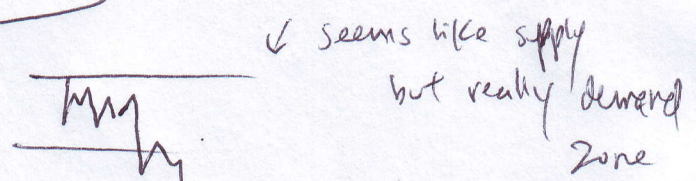 seems like supply
but really demand
zone